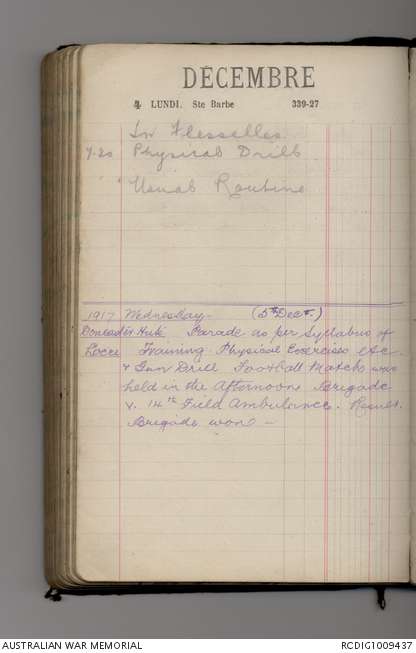 DÉCEMBRE
4 LUNDI. Ste Barbe 339-27
In Flesselles
7.20 Physical Drill
" Usual Routine
1917 Wednesday (5th Dect.)
Doncaster Huts Parade as per Syllabus of
Locre Training Physical Exercises etc
& Gun Drill Football Match was
held in the Afternoon Brigade
v. 14th Field Ambulance. Result
Brigade won —
AUSTRALIAN WAR MEMORIAL
RCDIG1009437